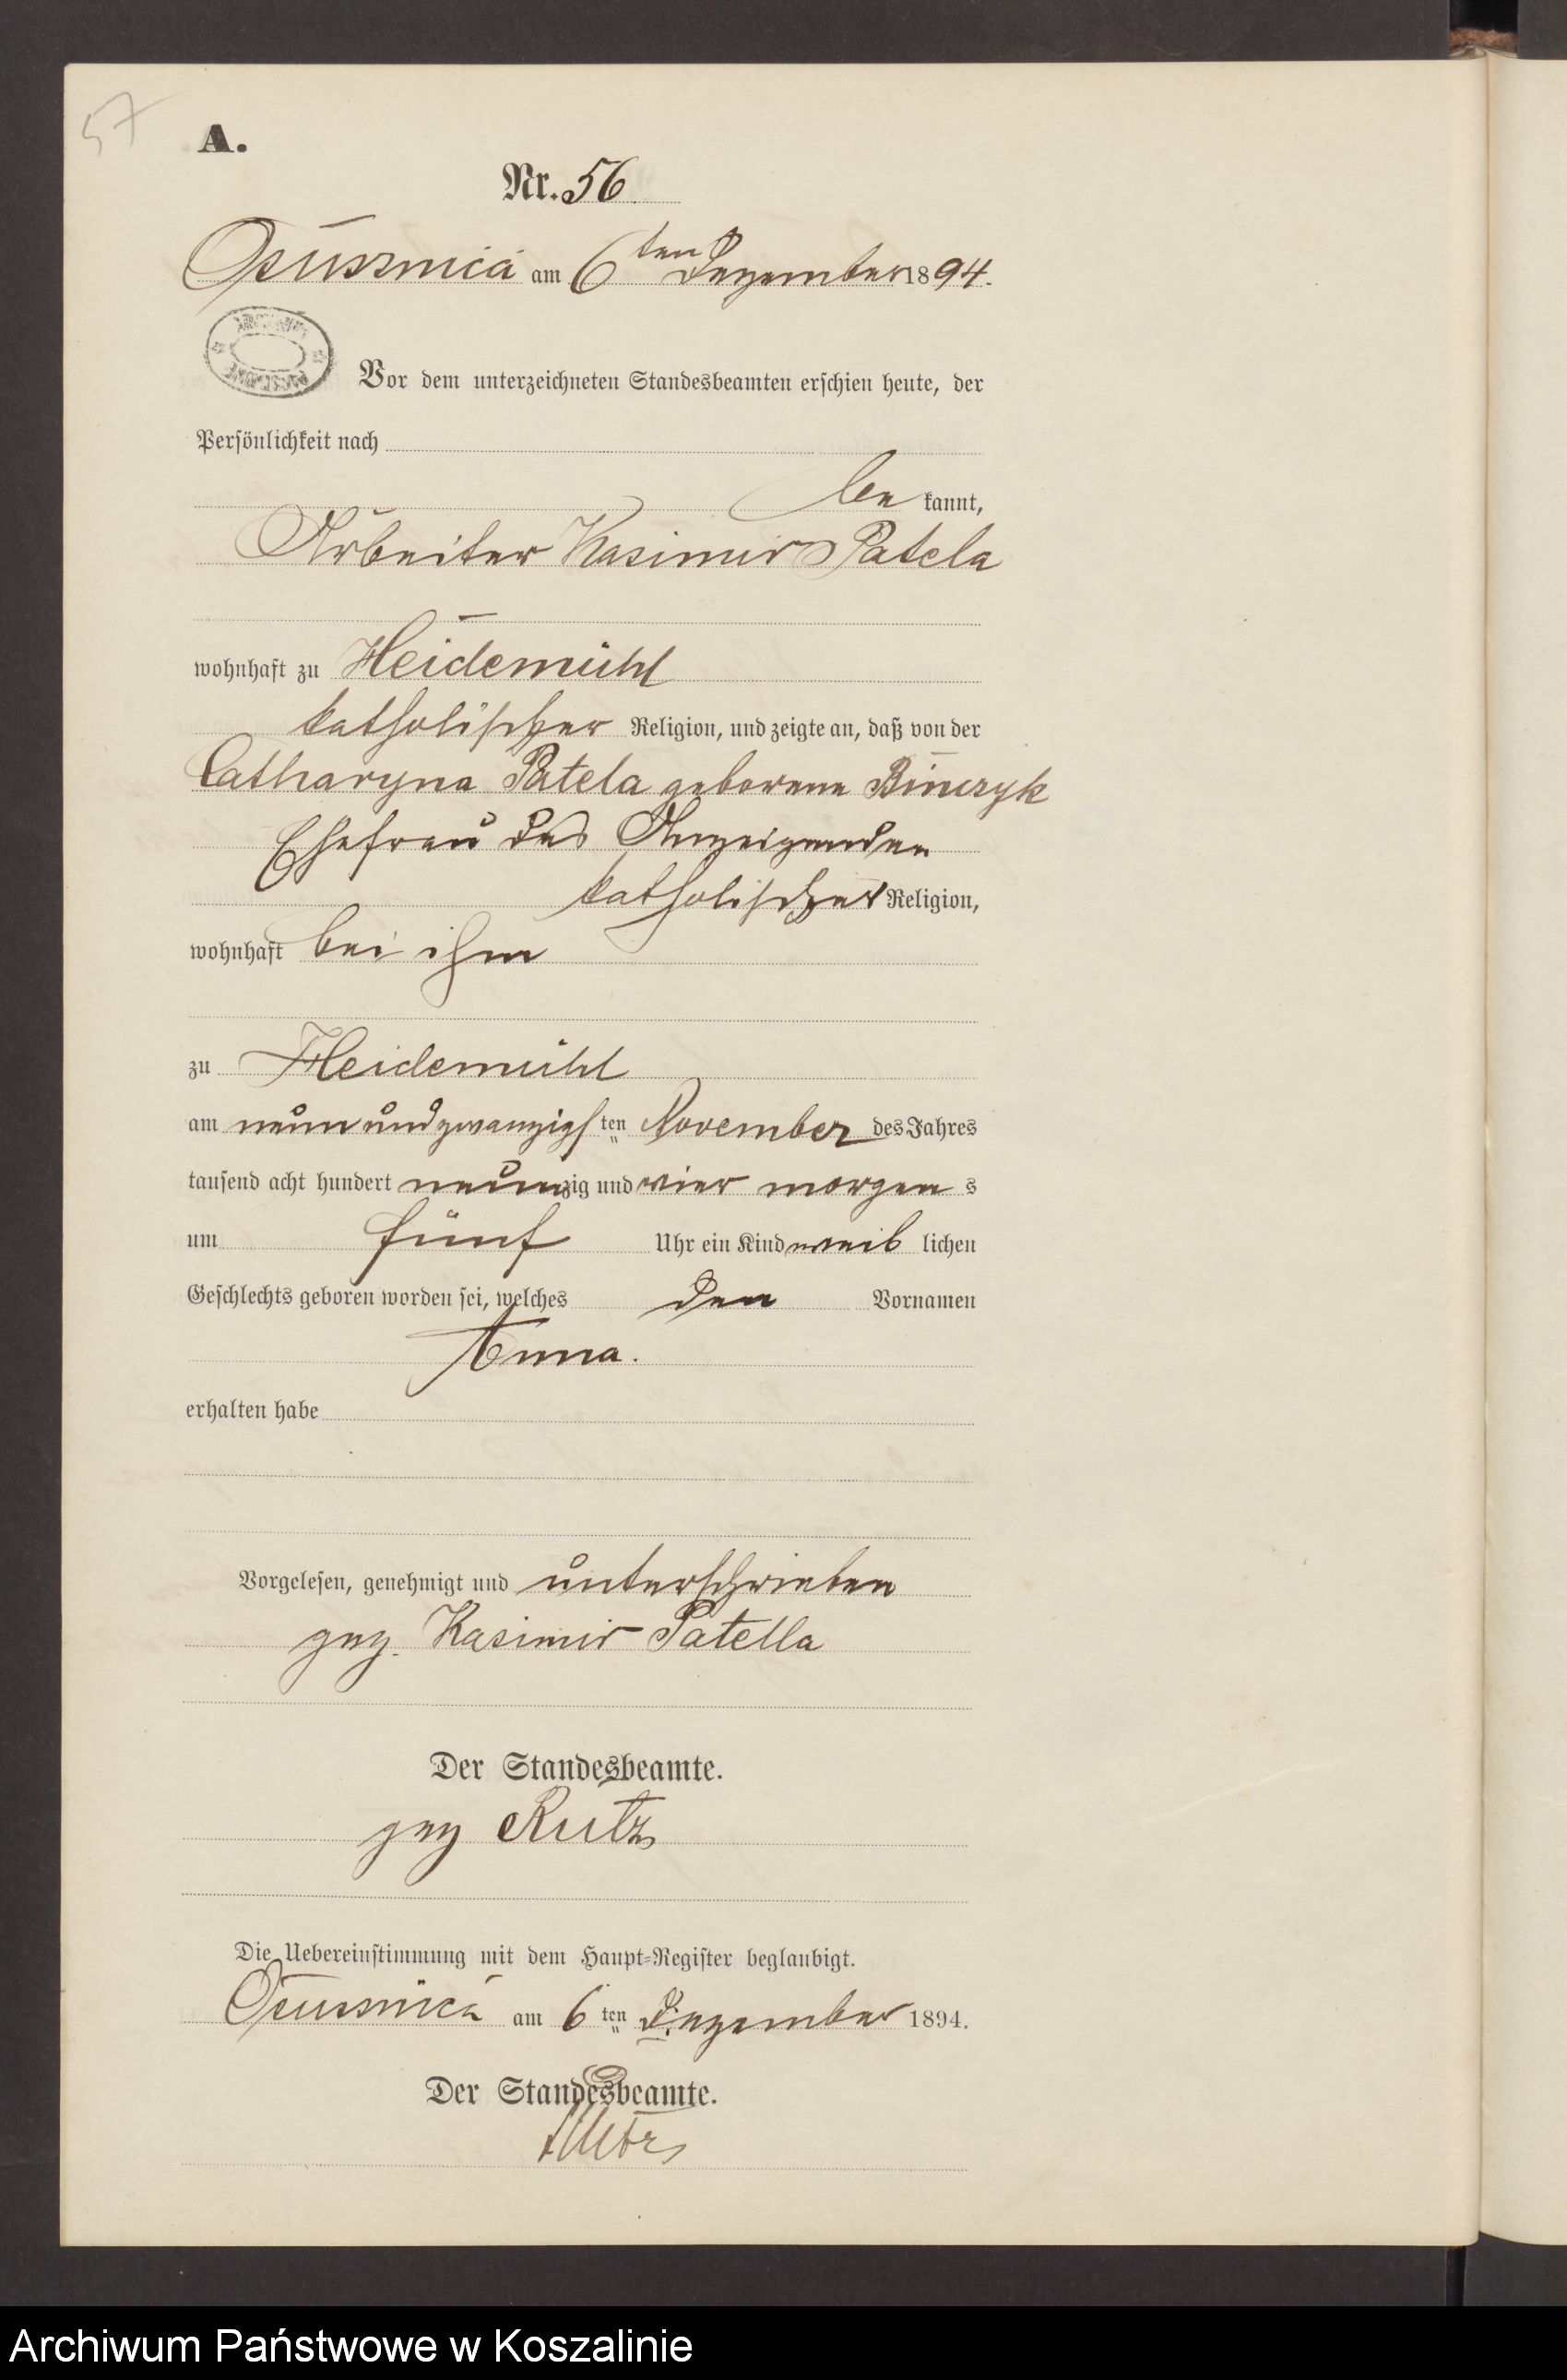 57
A.
Nr. 56
Ossusznica am 6ten Dezember 1894.
Vor dem unterzeichneten Standesbeamten erschien heute, der
Persönlichkeit nach
be kannt,
Arbeiter Kasimir Patela
wohnhaft zu Heidemühl
katholischer Religion, und zeigte an, daß von der
Catharyna Patela geborene Binczyk
Ehefrau des Anzeigenden
katholischer Religion,
wohnhaft bei ihm
zu Heidemühl
am neunundzwanzigsten November des Jahres
tausend acht hundert neunzig und vier morgens
um fünf Uhr ein Kind weiblichen
Geschlechts geboren worden sei, welches den Vornamen
Anna.
erhalten habe
Vorgelesen, genehmigt und unterschrieben
gez. Kasimir Patella
Der Standesbeamte.
gez Rutz
Die Uebereinstimmung mit dem Haupt-Register beglaubigt.
am 6ten Dezember 1894.
Der Standesbeamte.
Rutz
Archiwum Państwowe w Koszalinie